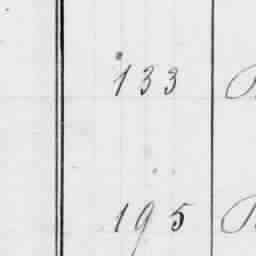 133
195